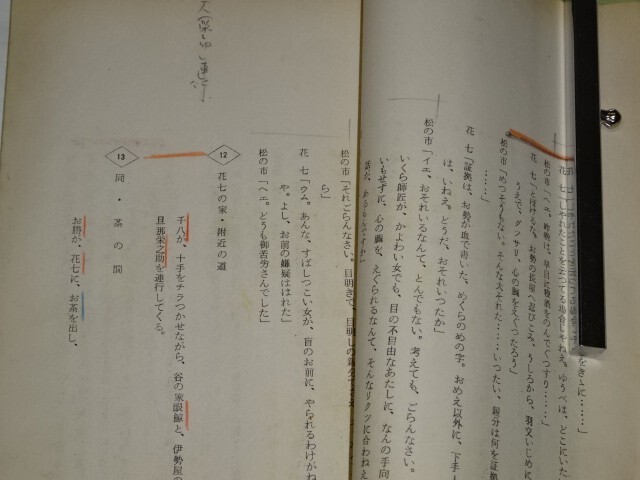 花 七「しゃれたことを云ってる場合じゃねえ。ゆうべは、どこにいた
松の市「ヘエ。昨晩は、早目に寝酒をのんでぐっすり……」
花 七「とぼけるな、お勢の長屋へ忍びこみ、うしろから、羽交いじめに
うまで、グッサリ、心の臓をえぐったろう」
松の市「めっそうもない。そんな大それた……いったい、親分は何を証拠
……」
花 七「証拠は、お勢が血で書いた、めくらのめの字。おめえ以外に、下手
は、いねえ。どうだ、おそれいったか」
松の市「イエ、おそれいるなんて、とんでもない。考えても、ごらんなさい。
いくら師匠が、かよわい女でも、目の不自由なあたしに、なんの手向
いもせずに、心の臓を、えぐられるなんて、そんなリクツに合わねえ
松の市「それごらんなさい。目明きで、目明しの
ら」
花 七「ウム。あんな、すばしっこい女が、盲のお前に、やられるわけがね
や。よし、お前の嫌疑ははれた」
松の市「ヘエ。どうも御苦労さんでした」
12 花七の家・附近の道
千八が、十手をチラつかせながら、谷の家眼鯨と、伊勢屋の
旦那栄之助を連行してくる。
13 同・茶の間
お勝が、花七に、お茶を出し、